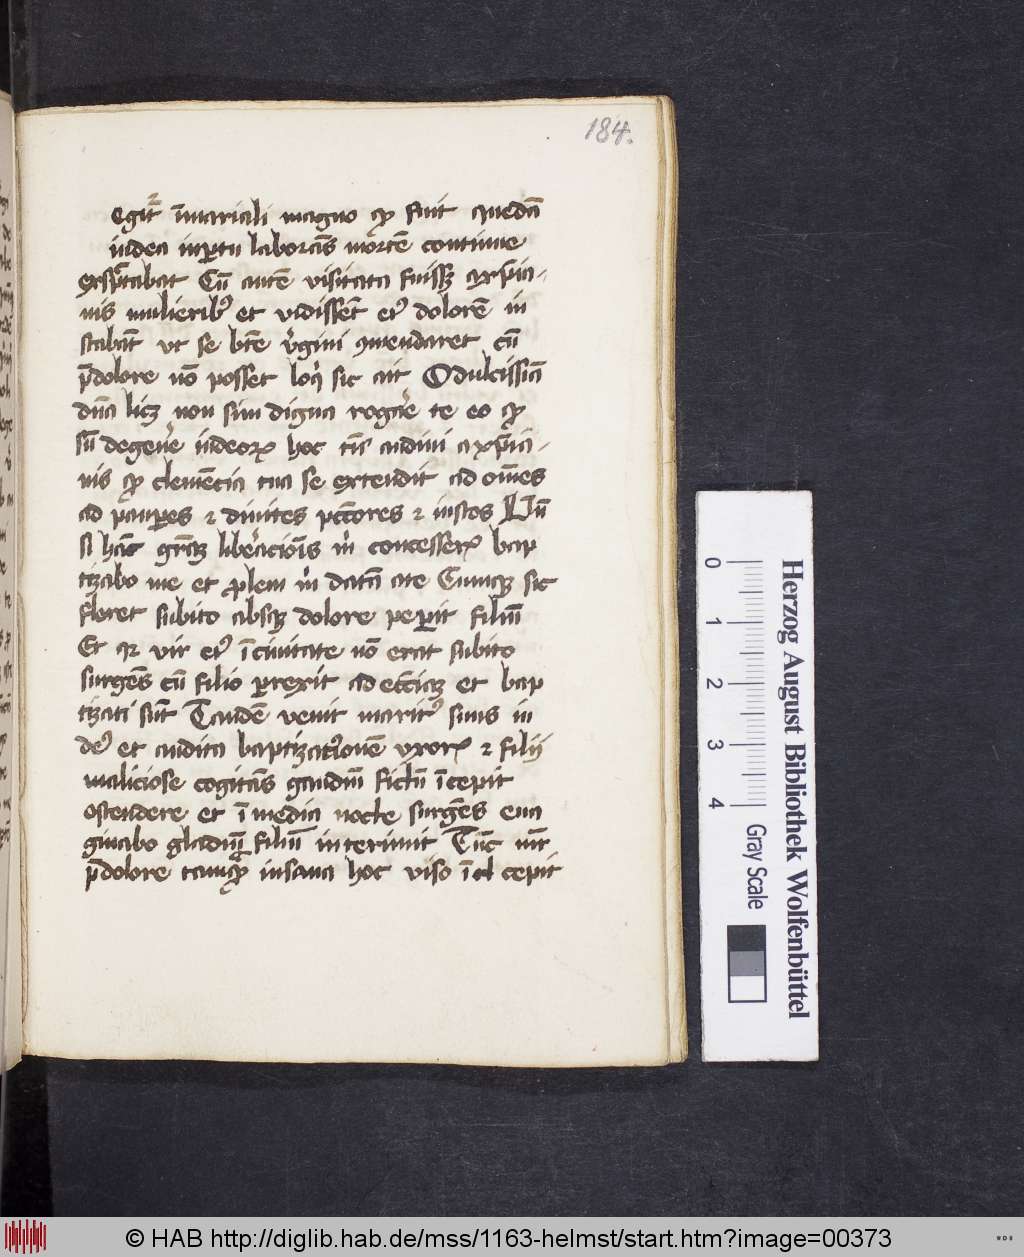 184.
egit᷑ ī mariali magno qꝫ fuit quedā
iudea in ꝑtu laborās mortē continue
exspctabat Cū autē visitata fuissꝫ a xp̄ia-
nis mulieribꝰ et vidissēt eiꝰ dolorē in
stabāt vt se btē v̓gini ↄmendaret cū
p̄ dolore nō posset loqͥ sic ait O dulcissīa
dn̄a licꝫ non sim digna rogar̄e te eo qꝫ
sū de gen̄e iudeoꝝ hoc tn̄ audiui a xp̄ia-
nis qꝫ clemēcia tua se extendit ad om̄es
ad pauꝑes ⁊ diuites pctōres ⁊ iustos
si hāc grāꝫ liberaciōīs m̓ concesserꝭ bap
tizabo me et ꝓlem m̓ datā a te Cumqꝫ sic
floret subito absqꝫ dolore peꝑit filiū
Et qꝛ vir eiꝰ ī ciuitate nō erat subito
surgēs cū filio ꝑrexit ad ecciāꝫ et bap
tizati sūt Tandē venit maritꝰ suus iu
deꝰ et audita baptizationē vxorꝭ ⁊ filij
maliciose cogitās gaudiū fictū īcepit
ostendere et ī media nocte surgēs eua
ginabo gladiū filiū interimit Tūc mr̄
p̄ dolore tamqꝫ insana hoc viso īcepit
Herzog August Bibliothek Wolfenbüttel
0 1 2 3 4 Gray Scale
© HAB http://diglib.hab.de/mss/1163-helmst/start.htm?image=00373